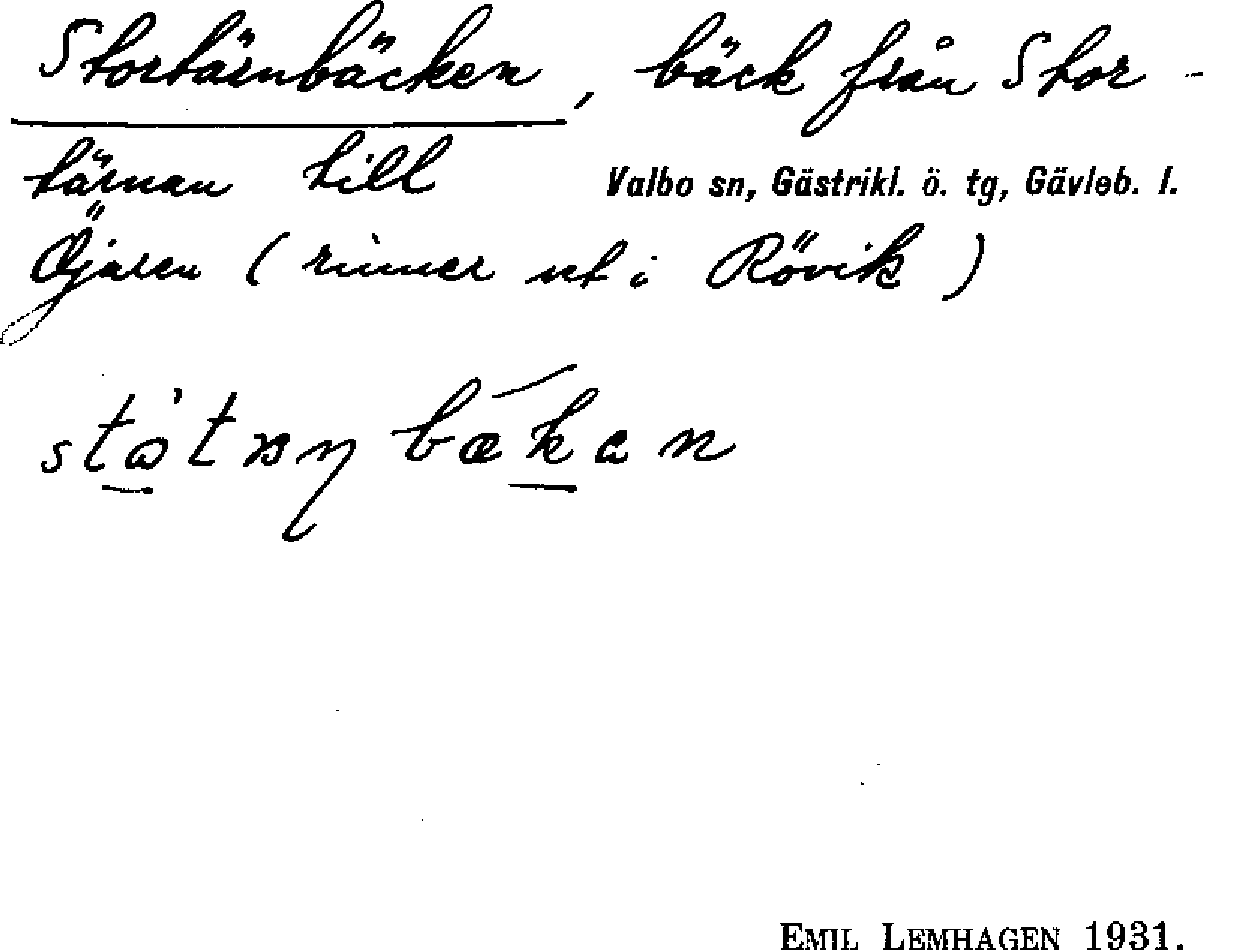 Stortärnbäcken, bäck från Stor-
tärnan till
Valbo sn, Gästrikl. ö. tg, Gävleb. l.
Öjaren (rinner ut i Rövik)
EMIL LEMHAGEN 1931.